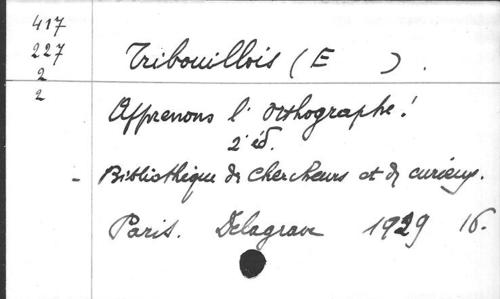 417
227
2
2
Tribouillois (E ).
Apprenons l'orthographe!
2e éd.
- Bibliothèque des chercheurs et des curieux.
Paris. Delagrave 1929 16.